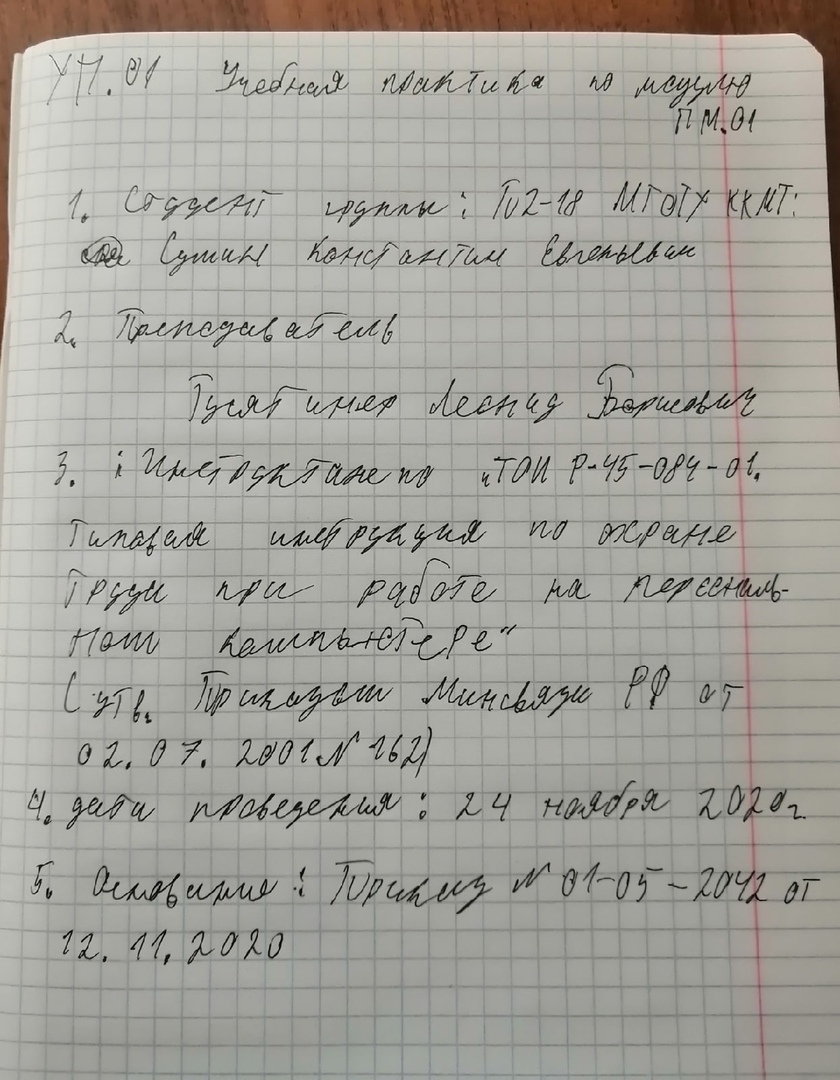 УП.01 Учебная практика по модулю
ПМ.01
1. Студент группы: П2-18 МГОТУ ККМТ:
Сумин Константин Евгеньевич
2. Преподаватель
Гусятинер Леонид Борисович
3. : Инструктаж по "ТОИ Р-45-084-01.
Типовая инструкция по охране
труда при работе на персональ-
ном компьютере"
(утв. Приказом Минсвязи РФ от
02.07.2001 N 162)
4. дата проведения: 24 ноября 2020г.
5. Основание: Приказ N 01-05-2042 от
12.11.2020